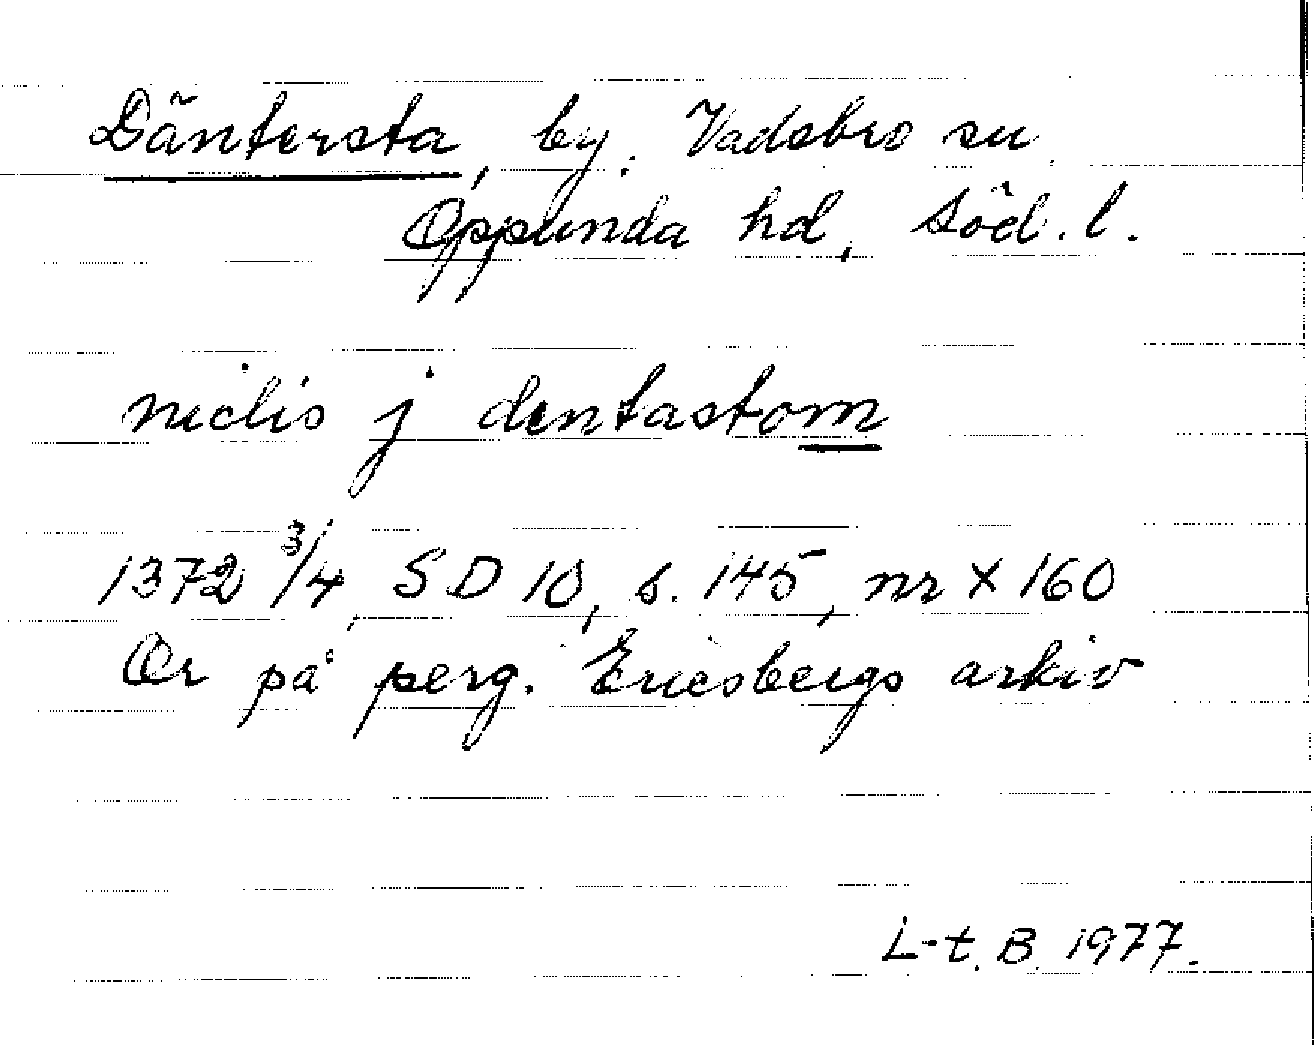 Däntersta, by. Vadsbro sn
Oppunda hd, Söd. l.
niclis j dentastom
1372 3/4, SD 10, s. 145, nr X 160
Or på perg. Ericsbergs arkiv
L-t. B. 1977.